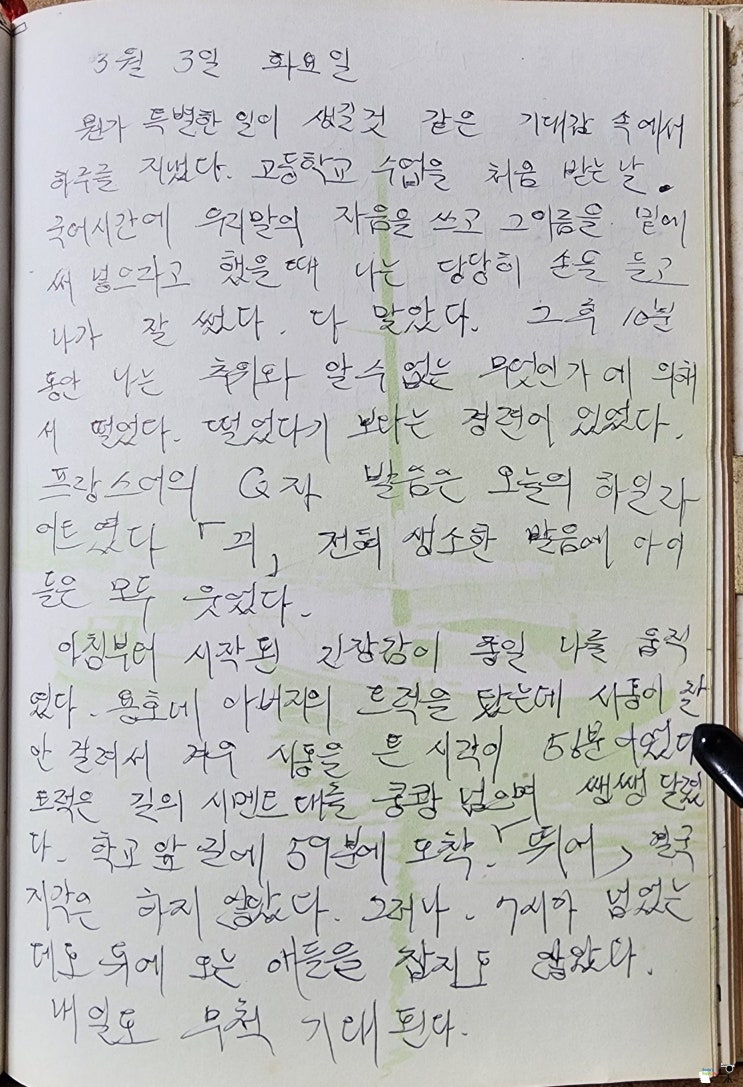 3월 3일 화요일
뭔가 특별한 일이 생길것 같은 기대감 속에서
하루를 지냈다. 고등학교 수업을 처음 받는 날.
국어시간에 우리말의 자음을 쓰고 그이름을 밑에
써 넣으라고 했을때 나는 당당히 손을 들고
나가 잘 썼다. 다 맞았다. 그후 10분
동안 나는 추위와 알수없는 무엇인가에 의해
서 떨었다. 떨었다기 보다는 경련이 있었다.
프랑스어의 Q자 발음은 오늘의 하일라
이트였다 「뀌」 전혀 생소한 발음에 아이
들은 모두 웃었다.
아침부터 시작된 긴장감이 종일 나를 움직
였다. 용호네 아버지의 트럭을 탔는데 시동이 잘
안 걸려서 겨우 시동을 튼 시각이 56분이었다
트럭은 길의 시멘트대를 쿵쾅 넘으며 쌩쌩 달렸
다. 학교앞 길에 59분에 도착. 「뛰어」 결국
지각은 하지 않았다. 그러나. 7시가 넘었는
데도 뒤에 오는 애들을 잡지도 않았다.
내일도 무척 기대된다.